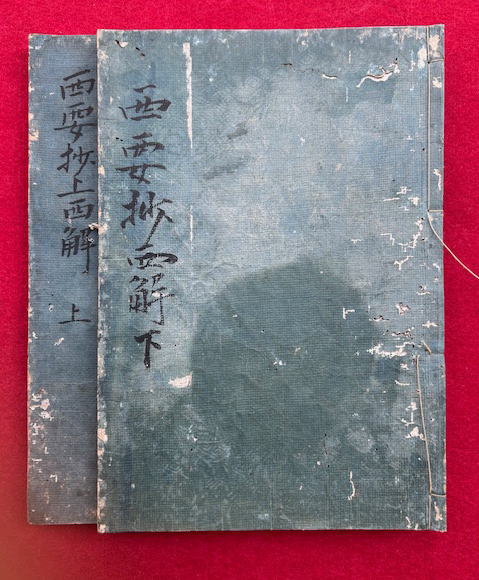 西要抄西解 下
西要抄上西解 上